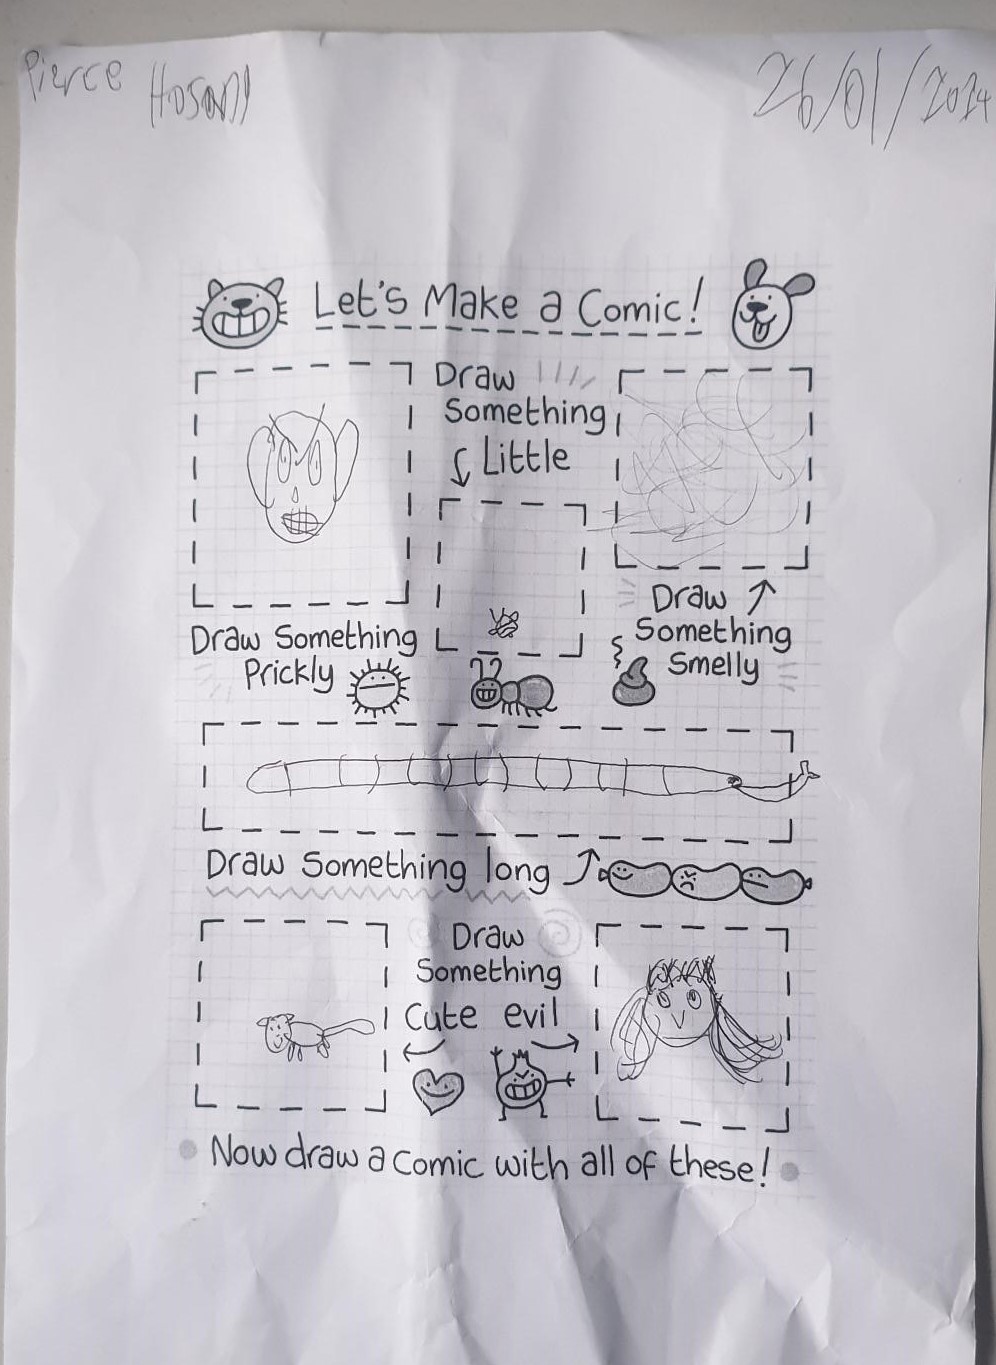 Pierce
26/01/2024
Let's Make a Comic!
Draw
Something
Little
Draw
Something
Smelly
Draw Something
Prickly
Draw Something long
Draw
Something
Cute evil
Now draw a comic with all of these!